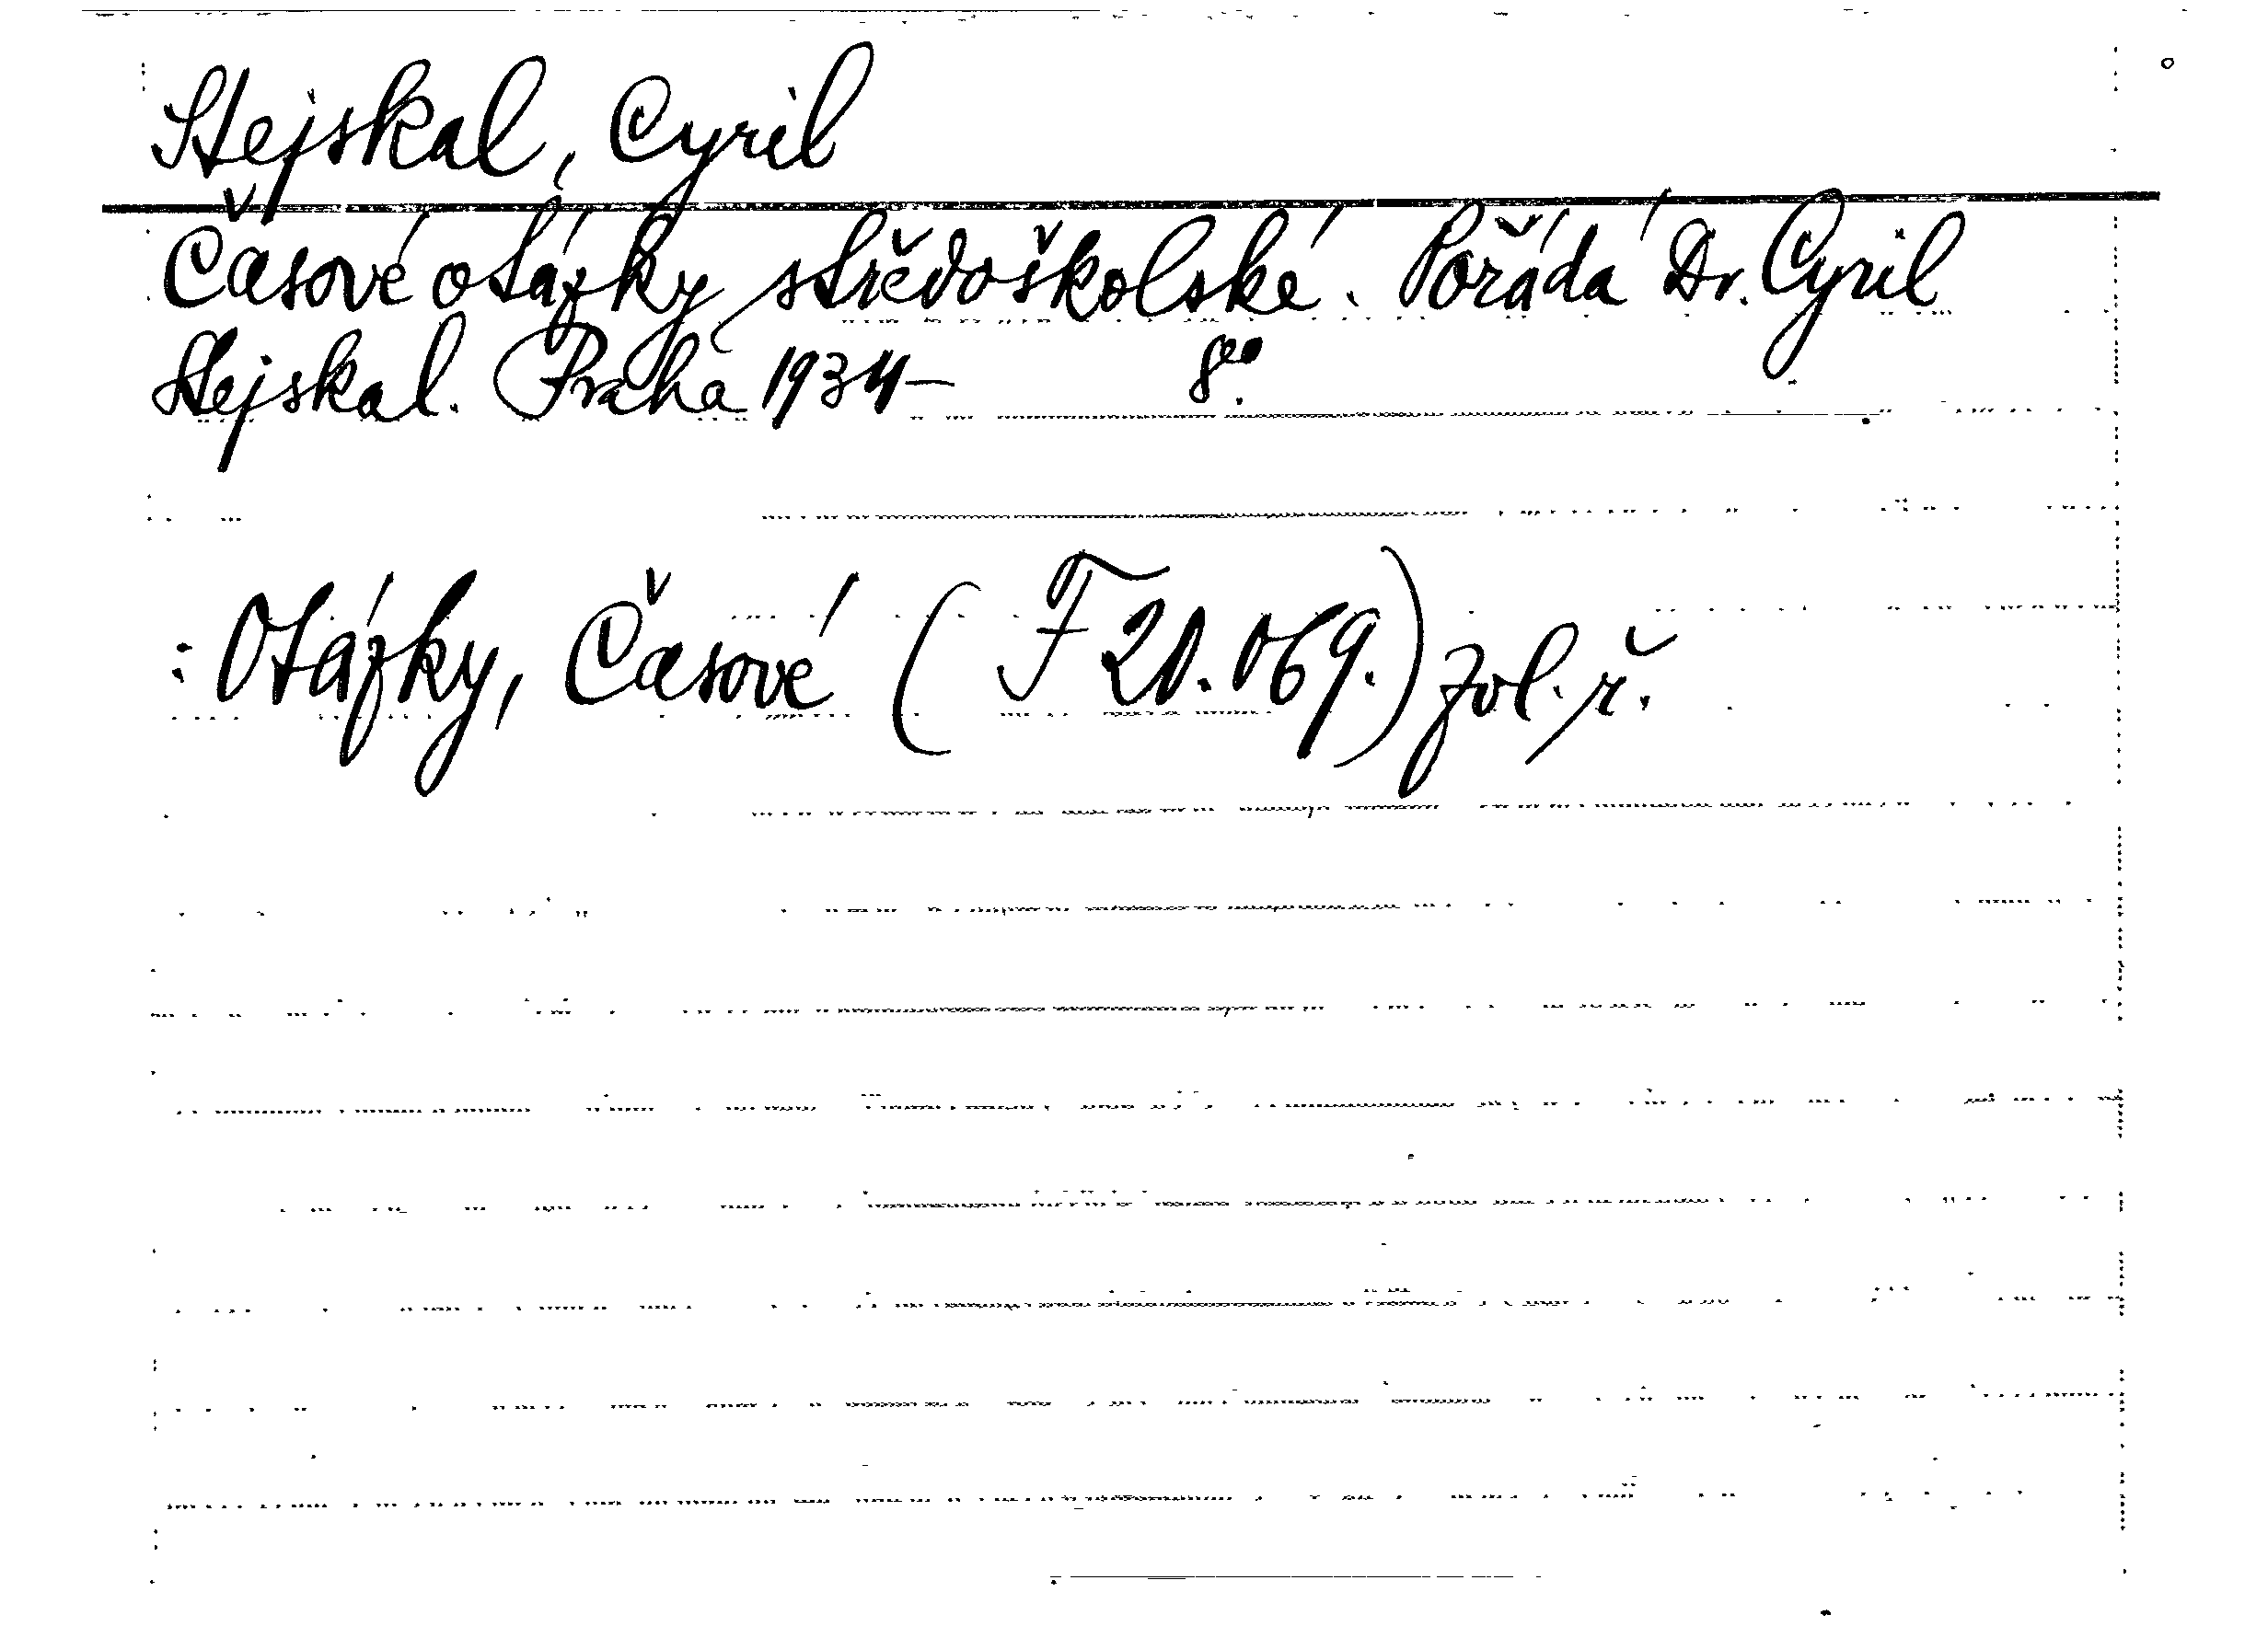 Stejskal, Cyril
Časové otázky středoškolské. Pořádá Dr. Cyril
Stejskal. Praha 1934- 8°.
: Otázky, Časové (F 20.069.) zvl. ř.